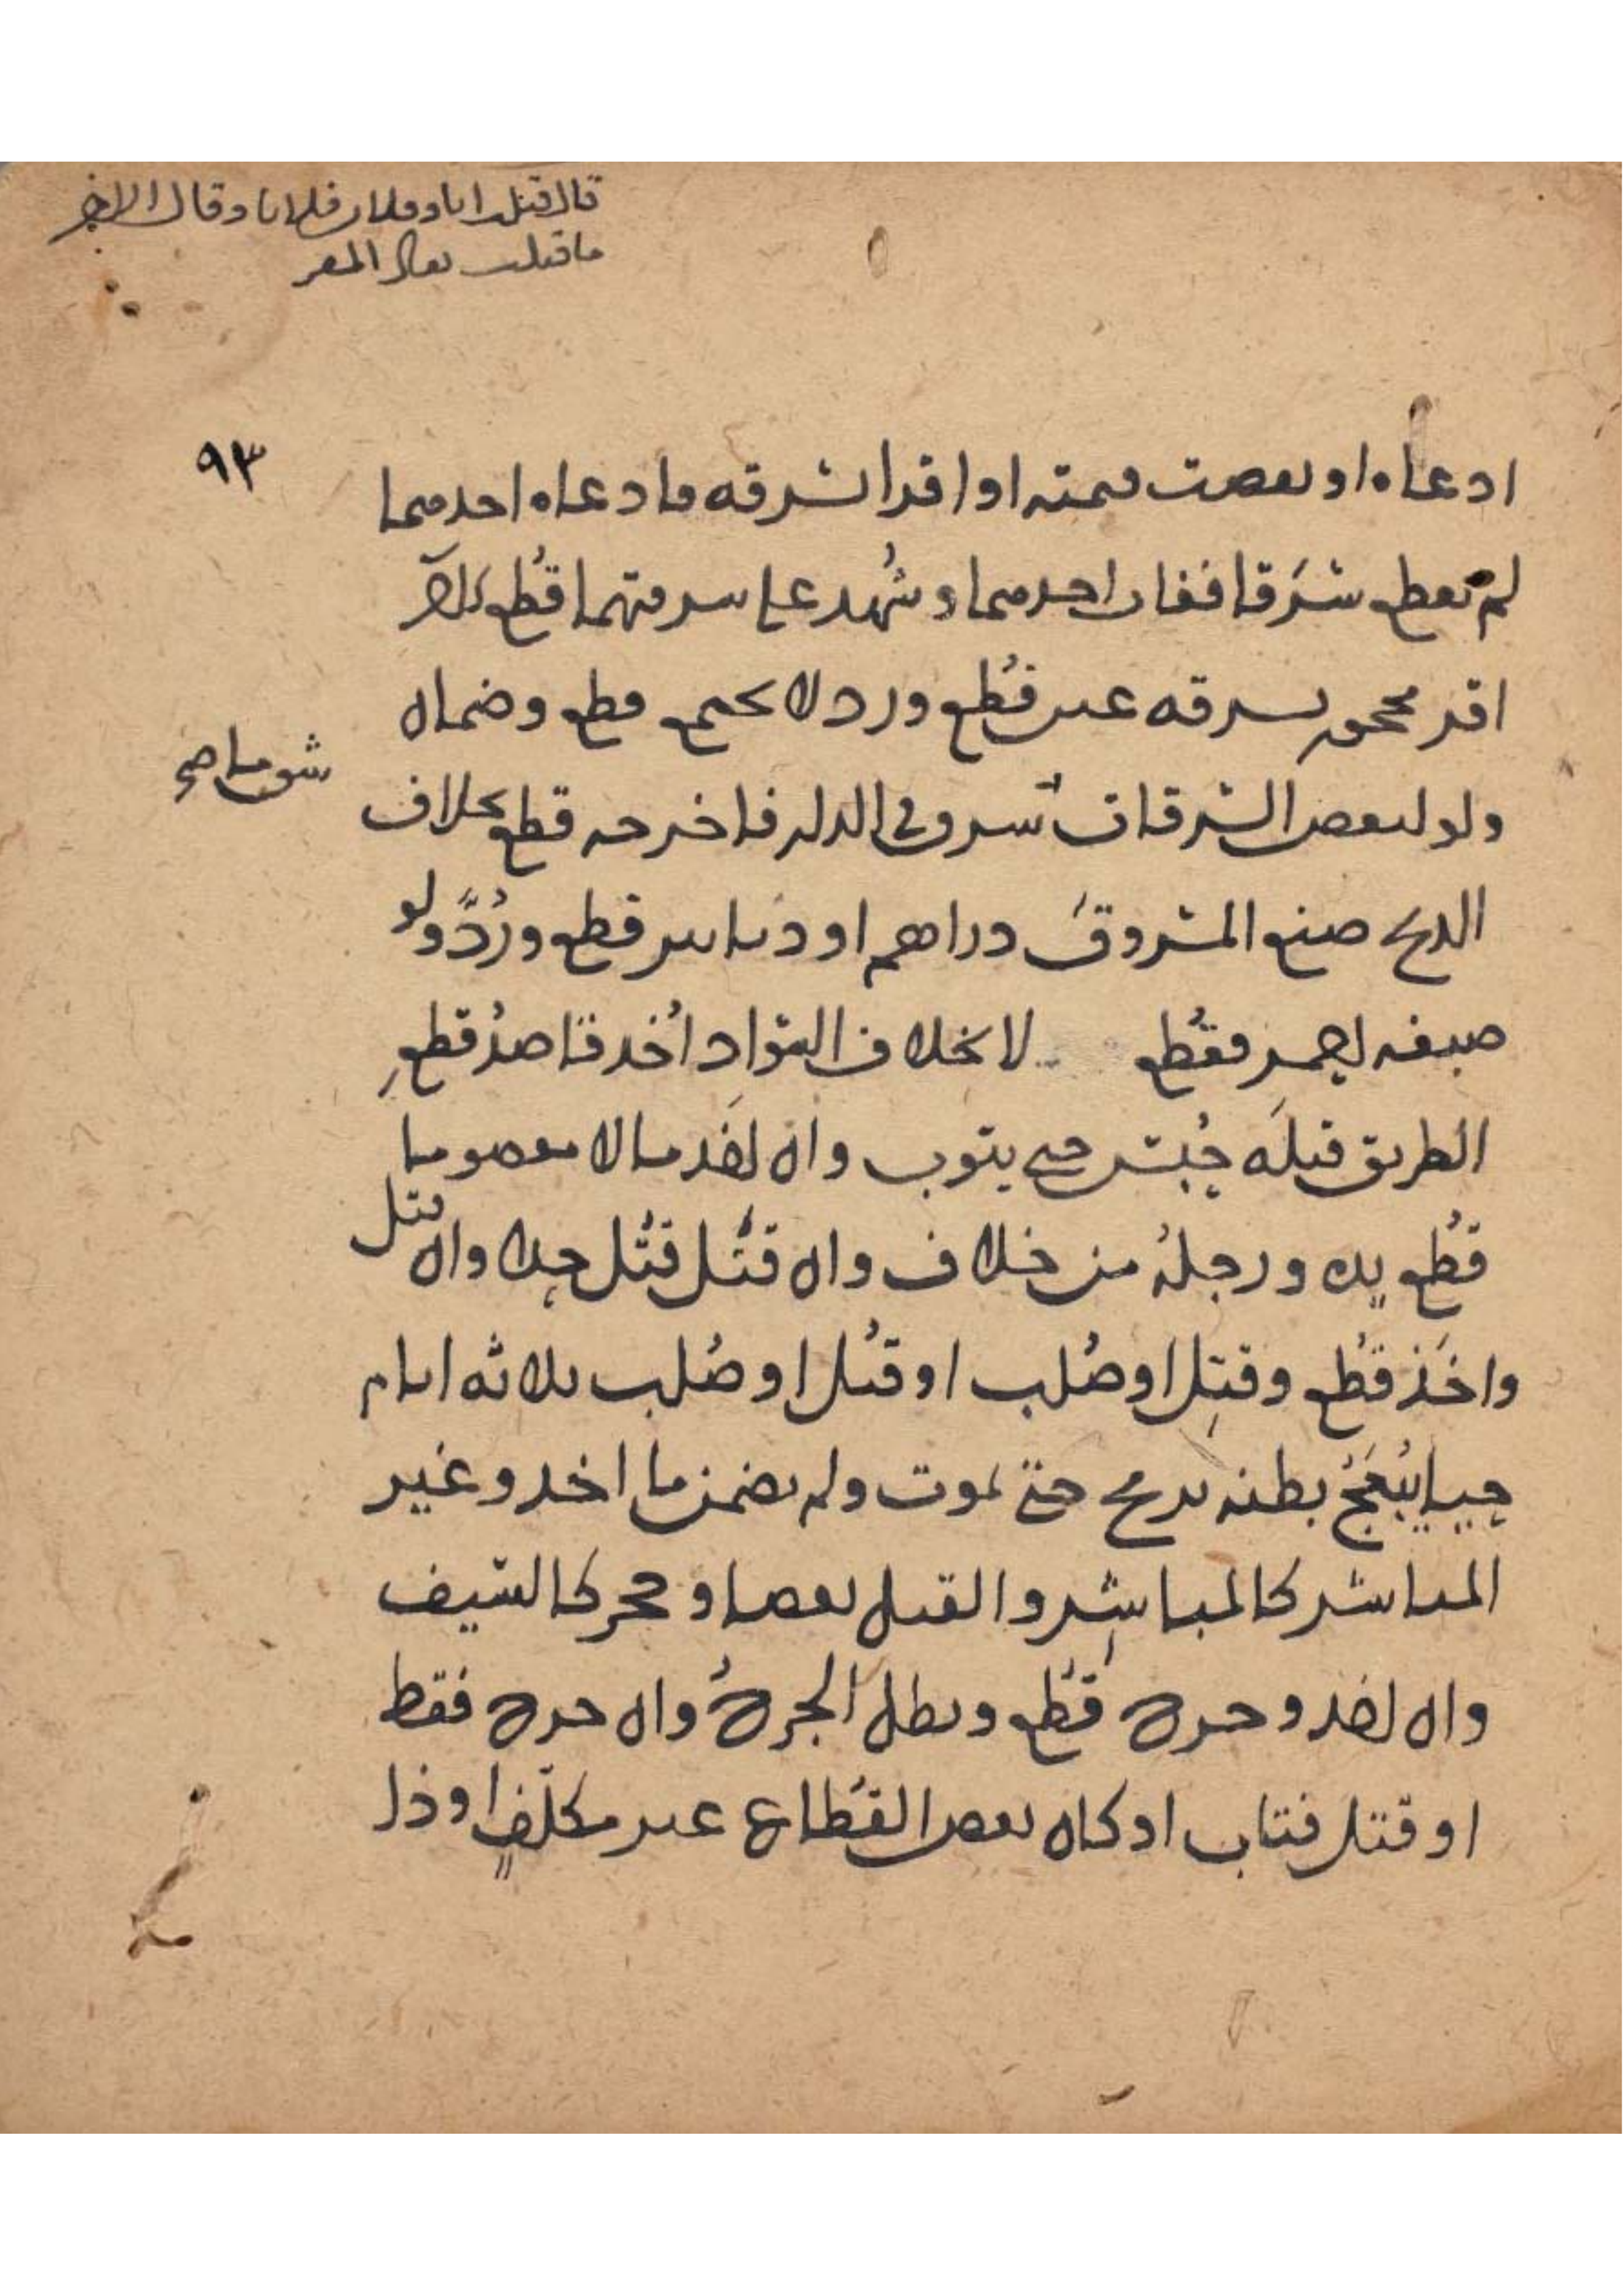 قال قتلت انا وفلان فلانا وقال الاخر
ما قتلت يقاد المقر
٩٣
ادعاه او نقصت قيمته او اقرا بسرقه فادعاه احدهما
لم يقطع سرقا فغاب احدهما وشُهد على سرقتهما قُطع الاخر
اقر محجور بسرقه عبد قُطع ورد لا يجمع قطع وضمان
شق ما صح
ولو لبعض السرقات سرق في الدار فاخرجه قطع بخلاف
الذبح صنع المسروق دراهم او دنانير قطع ورُدَّ ولو
صبغه احمر فقُطع لا بخلاف السواد اُخذ قاصدُ قطعِ
الطريق قبلَه حُبس حتى يتوب وان اخذ مالا معصوما
قُطع يده ورجلهُ من خلاف وان قتَل قُتل حدا وان قتل
واخَذ قُطع وقتِل او صُلب او قُتل او صُلب ثلاثه ايام
حيا يُبعَجُ بطنه برمح حتى يموت ولم يضمن ما اخذ وغير
المباشر كالمباشِر والقتل بعصا وحجر كالسيف
وان اخذ وجرح قُطع وبطل الجرحُ وان جرح فقط
او قتل فتاب او كان بعض القُطاع غير مكلّفٍ او ذا